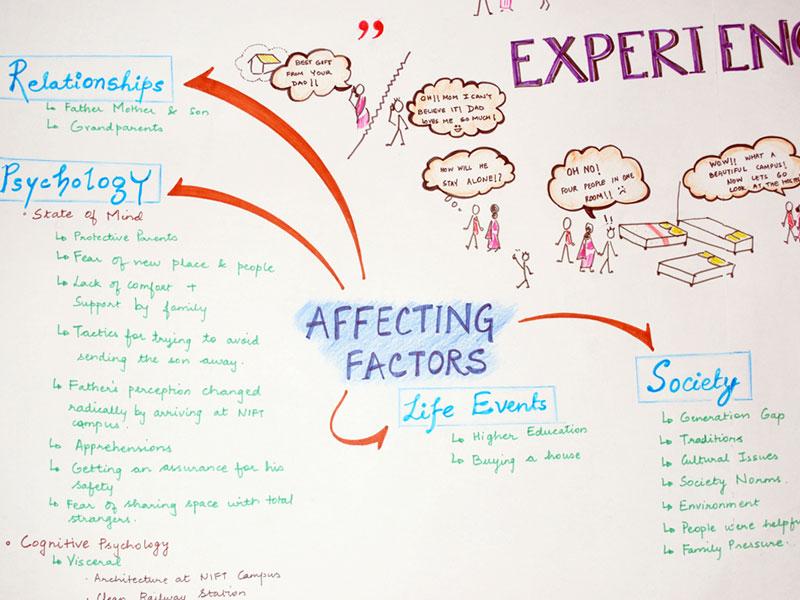 ”
EXPERIENC
BEST GIFT
FROM YOUR
DAD!!
OH!! MOM I CAN'T
BELIEVE IT! DAD
LOVES ME SO MUCH!
HOW WILL HE
STAY ALONE!?
OH NO!
FOUR PEOPLE IN ONE
ROOM!!
!!
WOW!! WHAT A
BEAUTIFUL CAMPUS!
NOW LETS GO
LOOK AT THE
Relationships
↳ Father Mother & son
↳ Grandparents
Psychology
• State of Mind
↳ Protective Parents
↳ Fear of new place & people
↳ Lack of comfort +
Support by family
↳ Tactics for trying to avoid
sending the son away.
↳ Father's perception changed
radically by arriving at NIFT
campus.
↳ Apprehensions
↳ Getting an assurance for his
safety
↳ Fear of sharing space with total
strangers.
• Cognitive Psychology
↳ Visceral
• Architecture at NIFT Campus
• Clean Railway Station
AFFECTING
FACTORS
Life Events
↳ Higher Education
↳ Buying a house
Society
↳ Generation Gap
↳ Traditions
↳ Cultural Issues
↳ Society Norms.
↳ Environment
↳ People were helpfu
↳ Family Pressure.